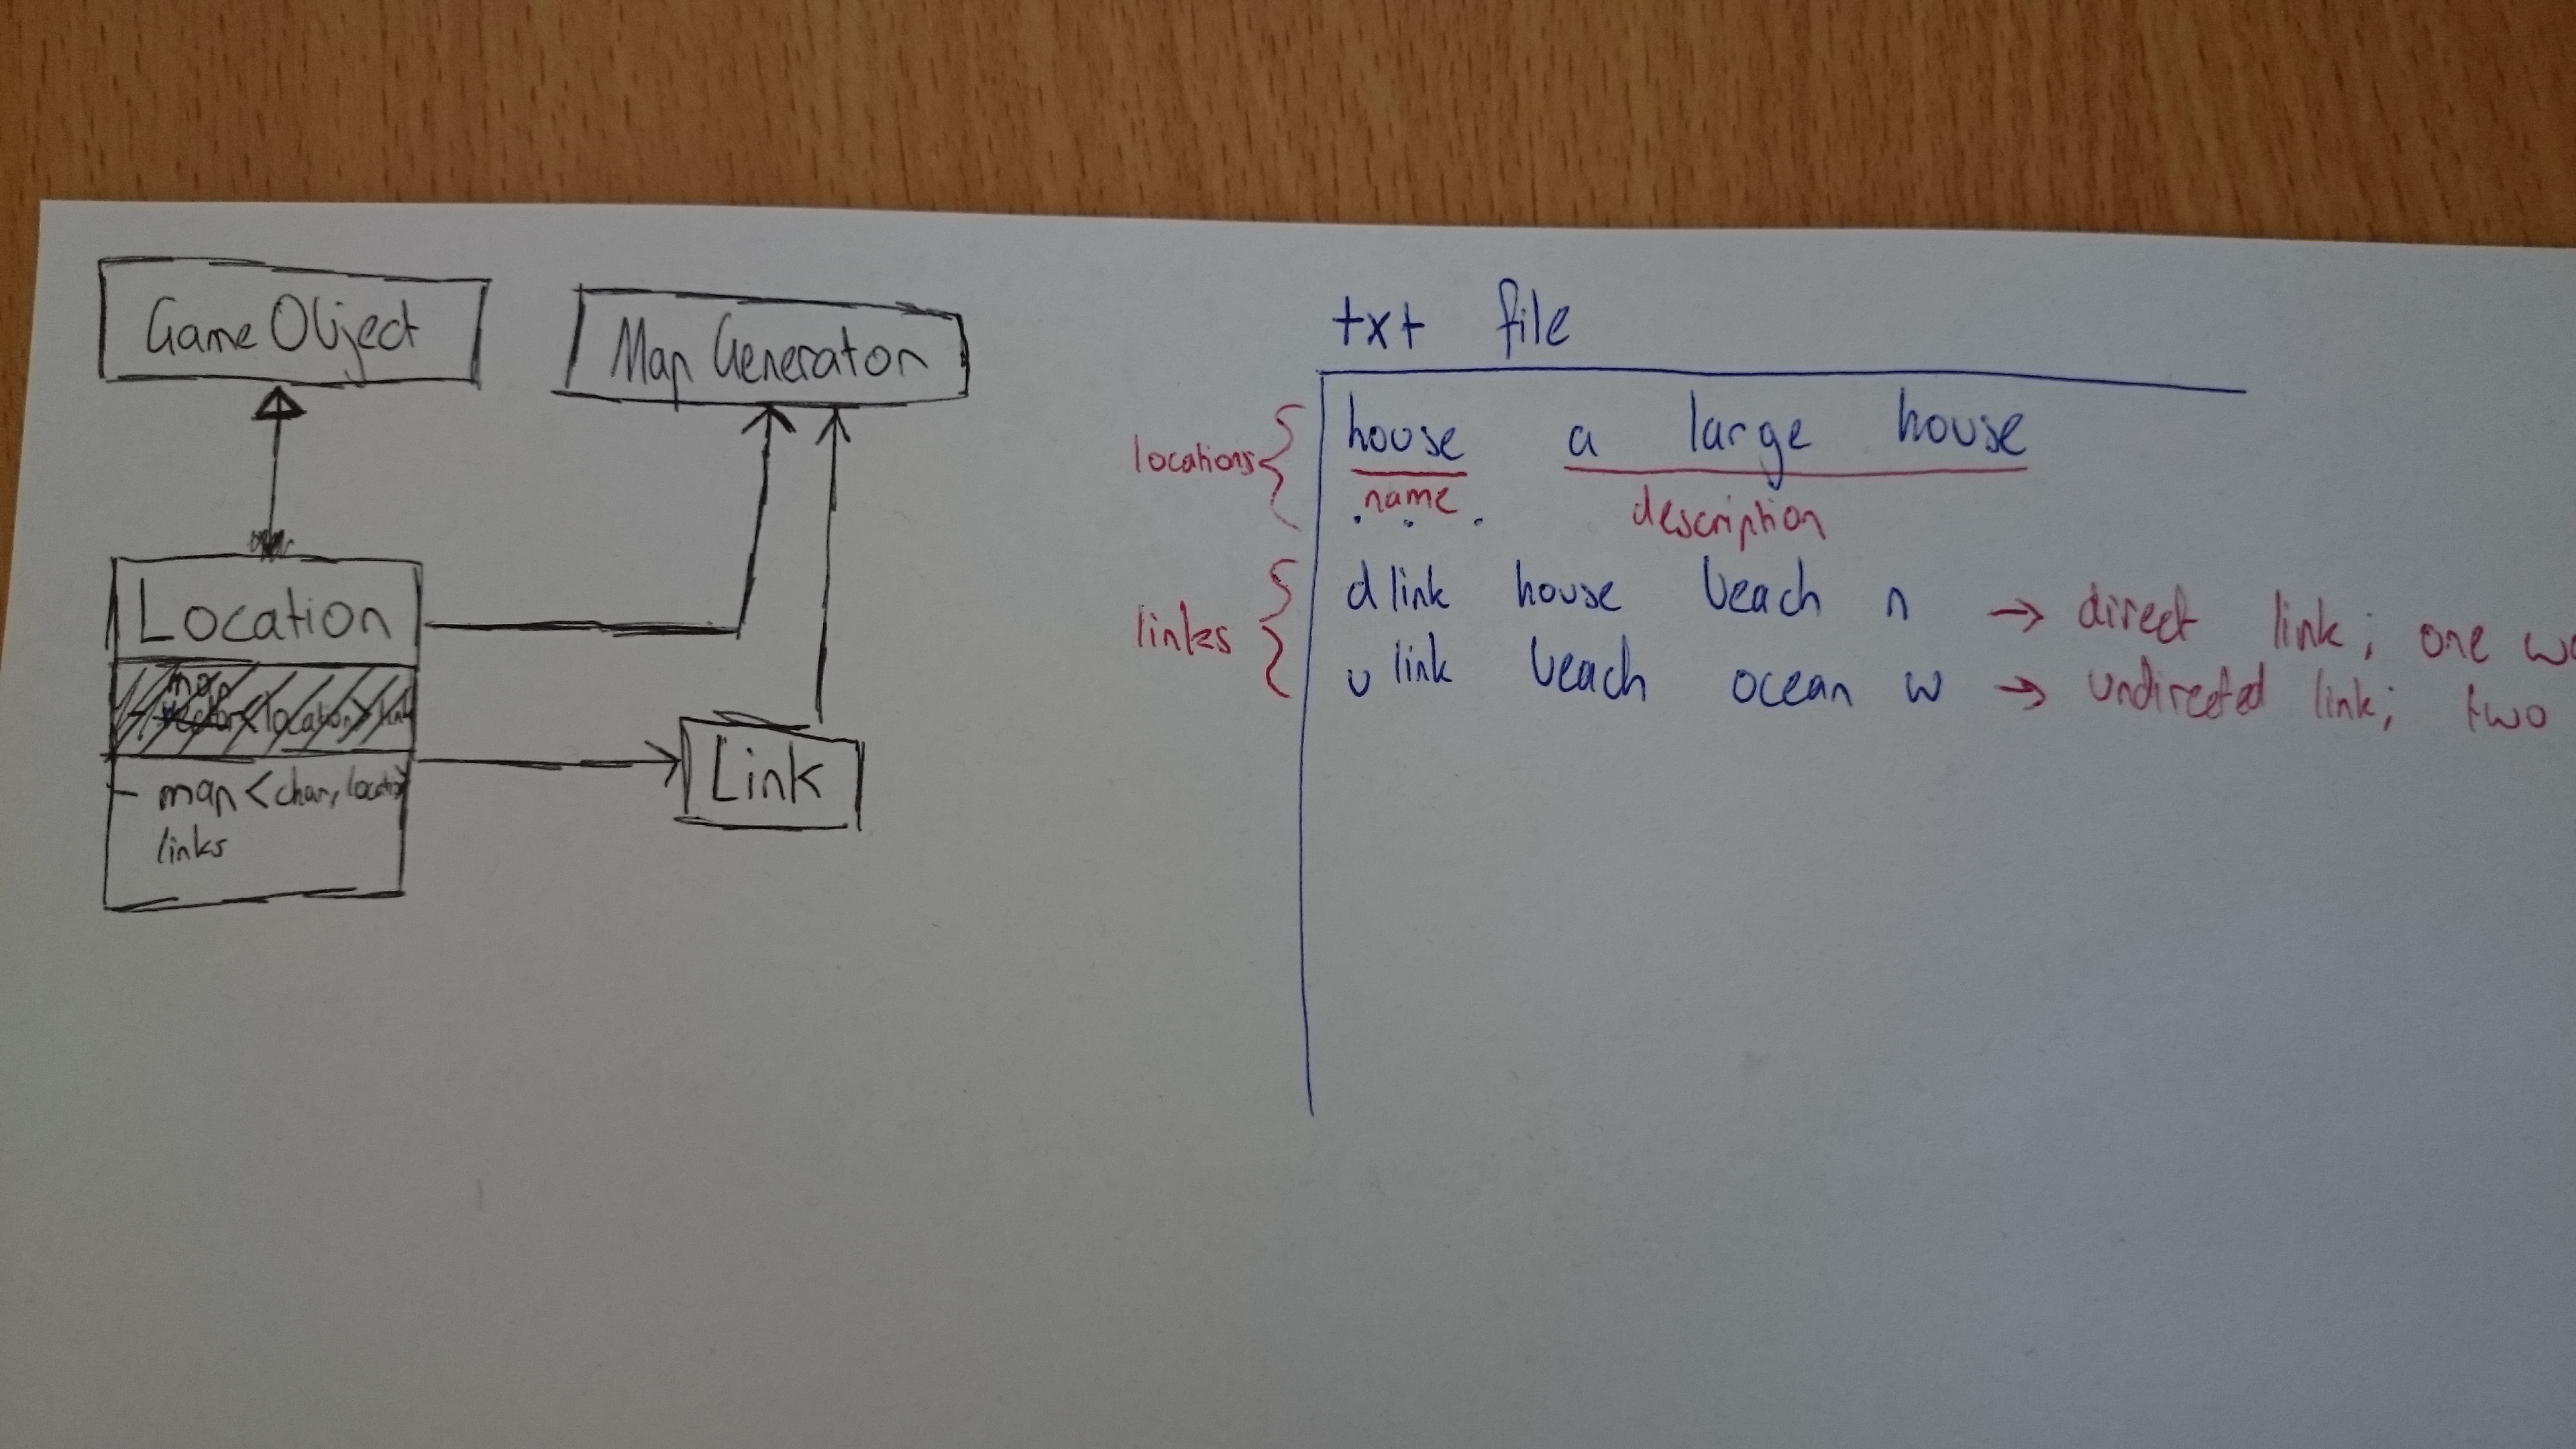 Game Object
Map Generator
Location
map
vector<location> link
- map<char, locatio>
links
Link
txt file
locations { house a large house
name description
. . .
links { dlink house beach n → direct link; one wa
ulink beach ocean w → undirected link; two